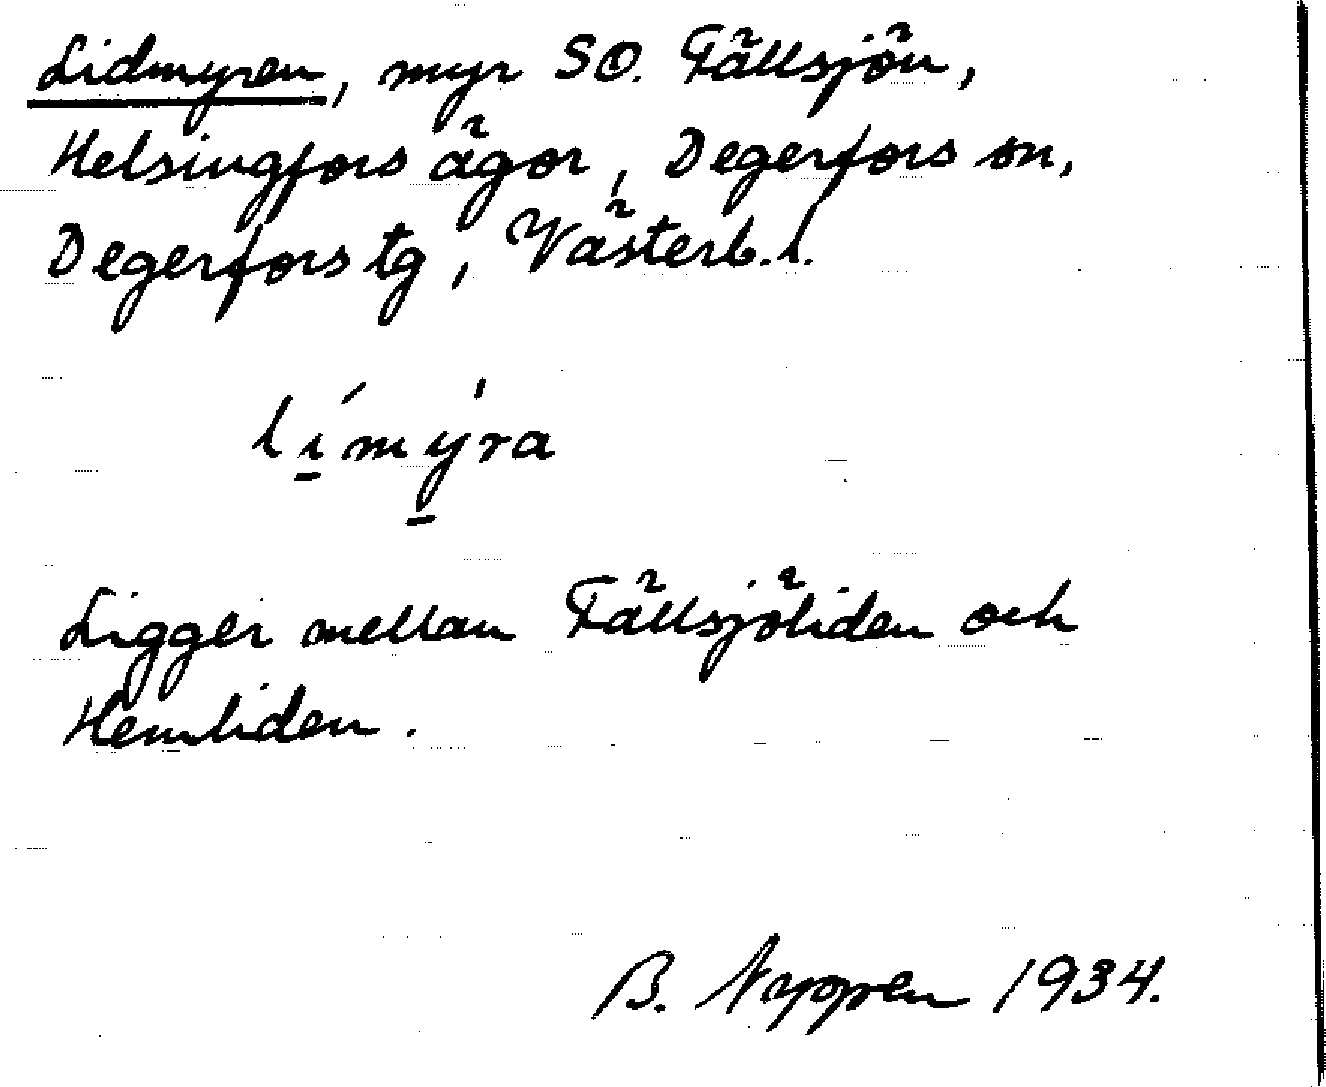 Lidmyren, myr SO. Fällsjön,
Helsingfors ägor, Degerfors sn,
Degerfors tg, Västerb. l.
li̱´my̱̍ra
Ligger mellan Fällsjöliden och
Hemliden.
B. 1934.